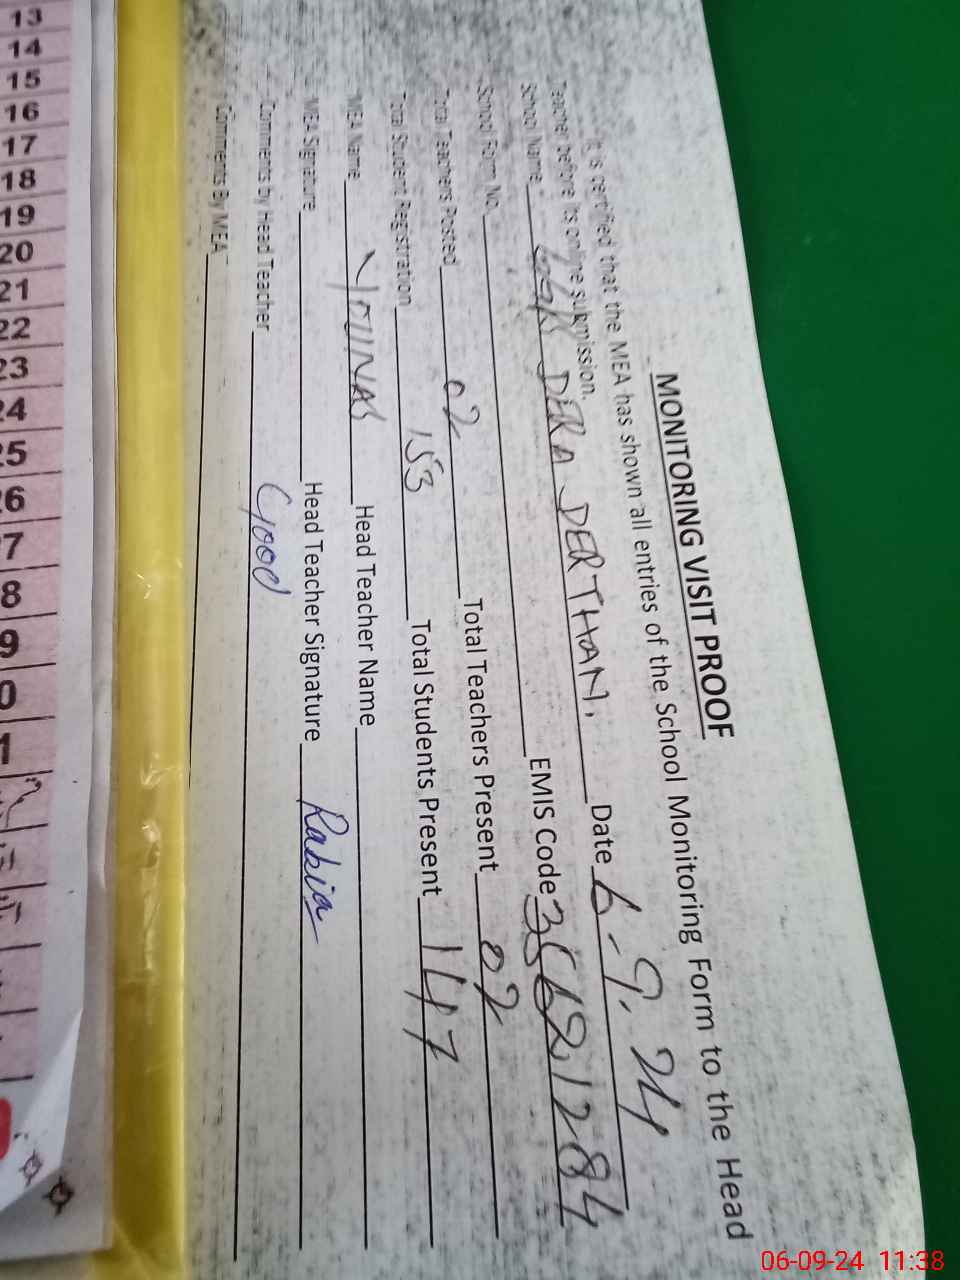 MONITORING VISIT PROOF
It is certified that the MEA has shown all entries of the School Monitoring Form to the Head
Teacher before its online submission.
School Name DERA DERTHAN. Date 6-9.24
School Form No. EMIS Code
Total Teachers Posted 02 Total Teachers Present 02
Total Student Registration 153 Total Students Present 147
MEA Name YOUNAS Head Teacher Name
MEA Signature Head Teacher Signature Rabia
Comments by Head Teacher Good
Comments By MEA
13
14
15
16
17
18
19
20
21
22
23
24
25
26
7
8
9
0
1
06-09-24 11:38